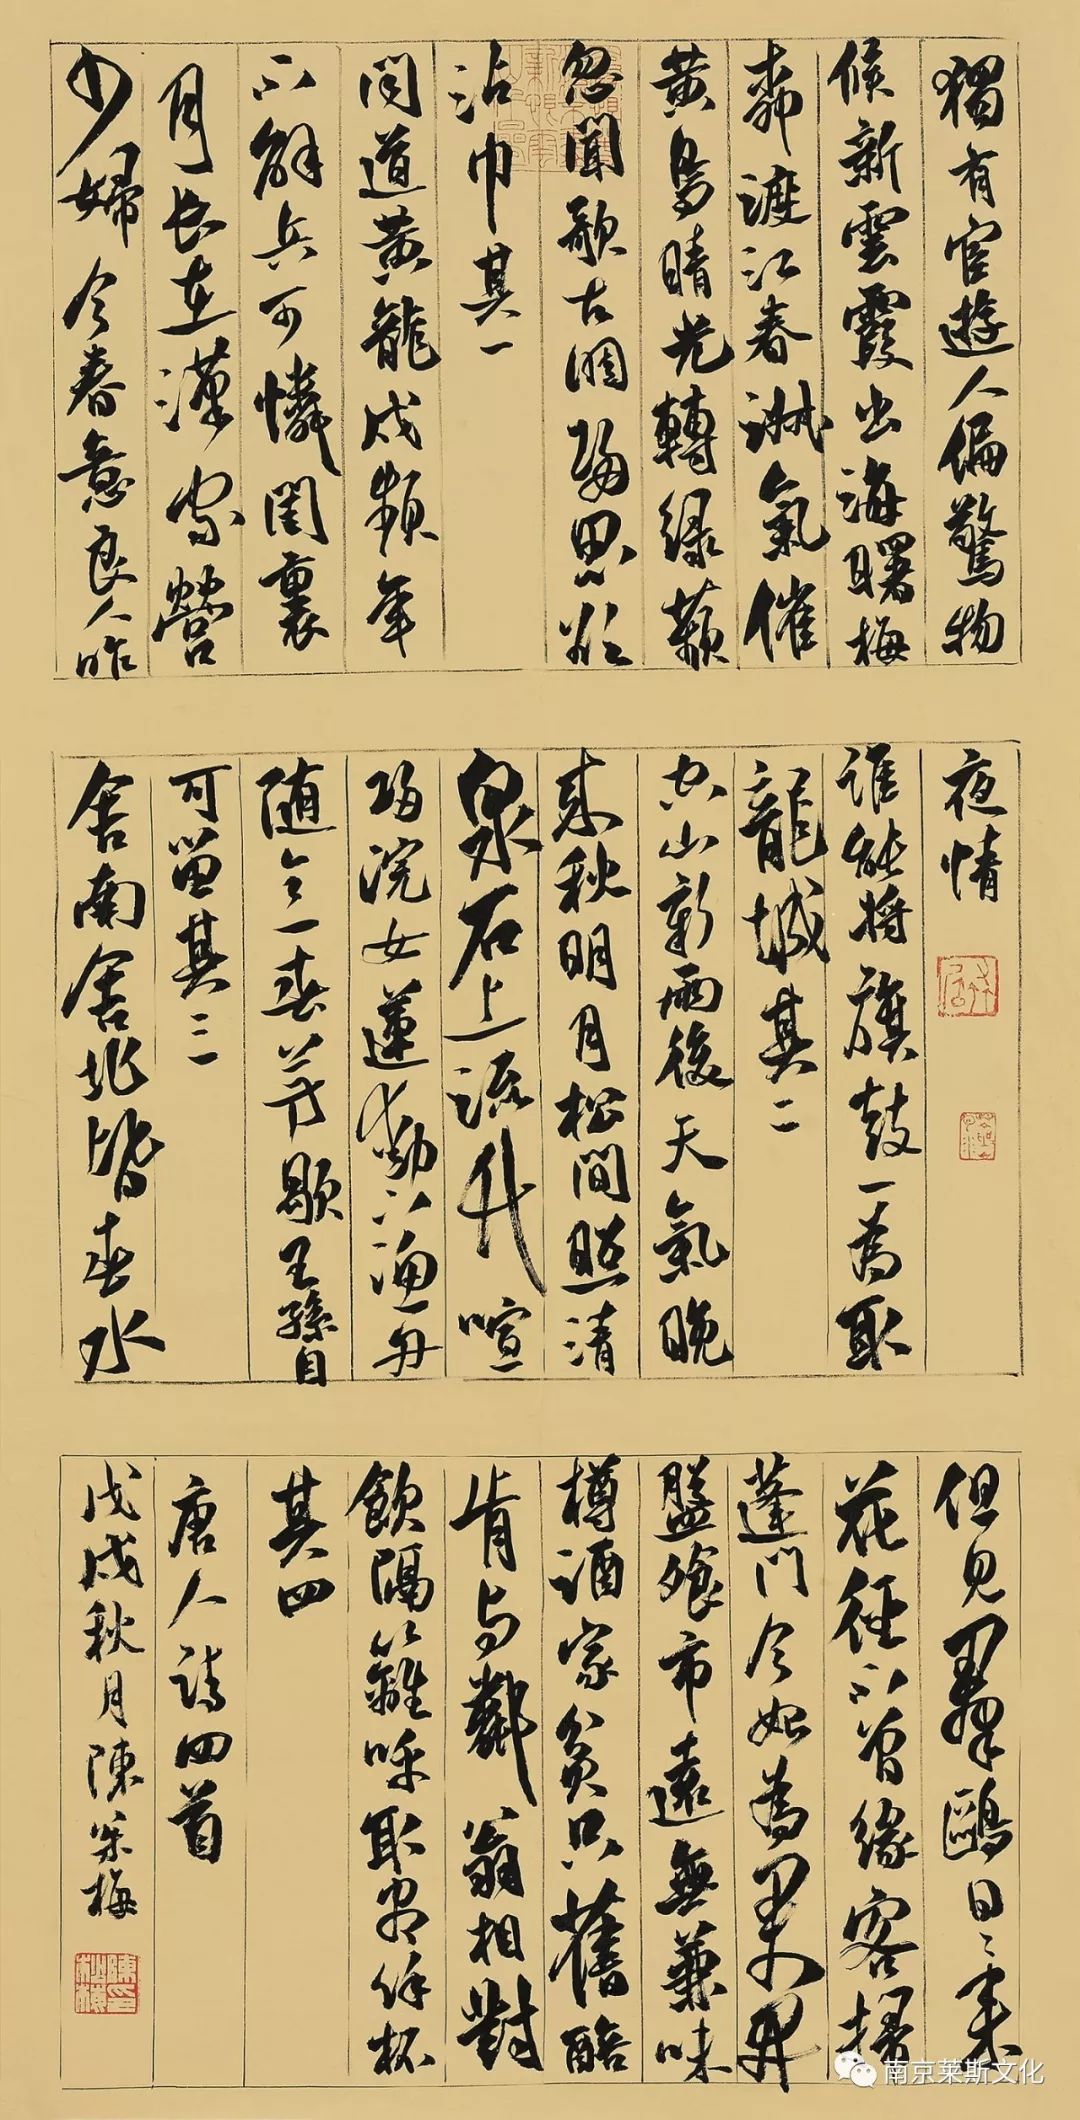 獨有宦遊人偏驚物
候新雲霞出海曙梅
柳渡江春淑氣催
黄鳥晴光轉緑蘋
忽聞歌古調歸思欲
沾巾其一
聞道黄龍戍頻年
不解兵可憐閨裏
月長在漢家營
少婦今春意良人昨
夜情
誰能將旗鼓一為取
龍城其二
空山新雨後天氣晚
來秋明月松間照清
泉石上流竹喧
歸浣女蓮動下漁舟
隨意春芳歇王孫自
可留其三
舍南舍北皆春水
但見羣鷗日〻來
花徑不曾緣客掃
蓬門今始為君開
盤飧市遠無兼味
樽酒家貧只舊醅
肯與鄰翁相對
飲隔籬呼取盡餘杯
其四
唐人詩四首
戊戌秋月陳梅
南京莱斯文化